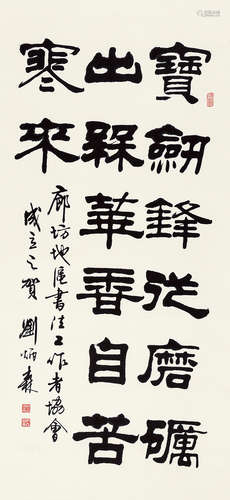 寶劒鋒從磨礪
出槑華香自苦
寒來
廊坊地區書法工作者協會
成立之賀 劉炳森